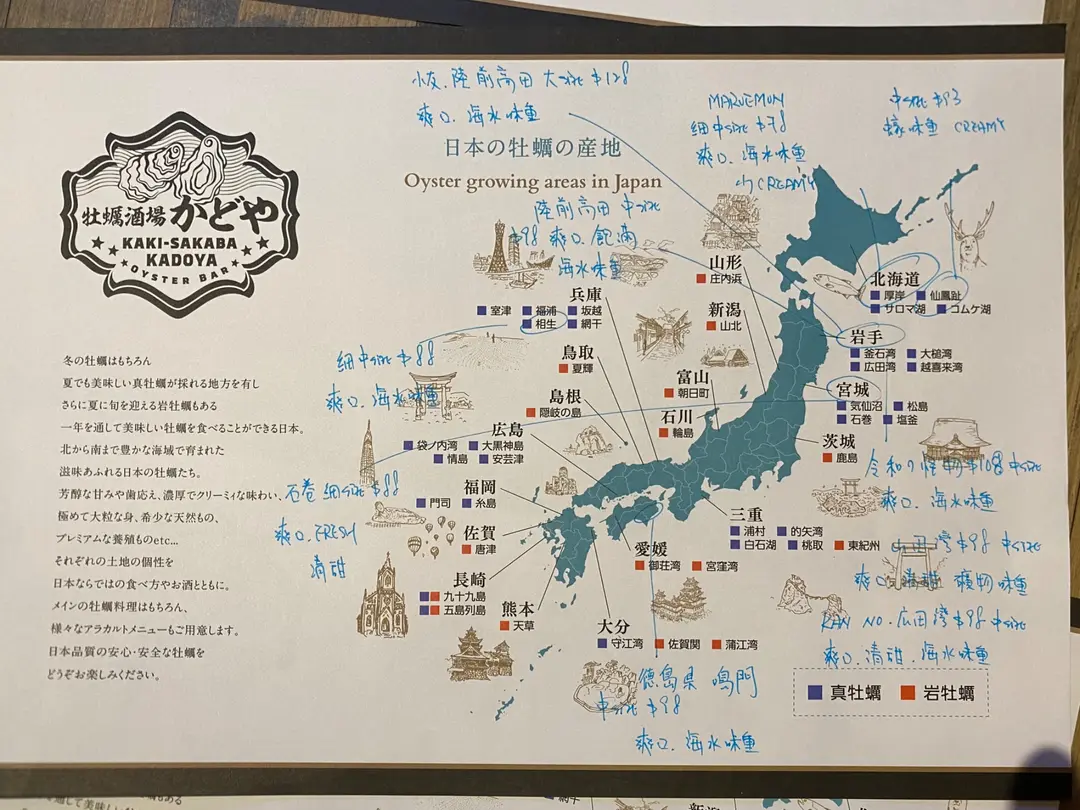 小友. 陸前高田 大size $128
爽口. 海水味重
MARUEMON
細中size $78
爽口. 海水味重
小CREAMY
中size $93
蠔味重 CREAMY
日本の牡蠣の産地
Oyster growing areas in Japan
陸前高田 中size
$98 爽口. 飽滿
海水味重
牡蠣酒場 かどや
KAKI-SAKABA
KADOYA
OYSTER BAR
山形
庄内浜
北海道
厚岸 仙鳳趾
サロマ湖 コムケ湖
兵庫
室津 福浦 坂越
相生 網干
新潟
山北
岩手
釜石湾 大槌湾
広田湾 越喜来湾
細中size $88
爽口. 海水味重
鳥取
夏輝
富山
朝日町
宮城
気仙沼 松島
石巻 塩釜
島根
隠岐の島
石川
輪島
広島
袋ノ内湾 大黒神島
情島 安芸津
茨城
鹿島
令和の怪物 $108 中size
爽口. 海水味重
冬の牡蠣はもちろん
夏でも美味しい真牡蠣が採れる地方を有し
さらに夏に旬を迎える岩牡蠣もある
一年を通して美味しい牡蠣を食べることができる日本。
北から南まで豊かな海域で育まれた
滋味あふれる日本の牡蠣たち。
芳醇な甘みや歯応え、濃厚でクリーミィな味わい、
極めて大粒な身、希少な天然もの、
プレミアムな養殖ものetc...
それぞれの土地の個性を
日本ならではの食べ方やお酒とともに。
メインの牡蠣料理はもちろん、
様々なアラカルトメニューもご用意します。
日本品質の安心・安全な牡蠣を
どうぞお楽しみください。
石巻 細size $88
爽口. FRESH
清甜
福岡
門司 糸島
佐賀
唐津
三重
浦村 的矢湾
白石湖 桃取 東紀州
愛媛
御荘湾 宮窪湾
山田灣 $98 中size
爽口 清甜 礦物味重
長崎
九十九島
五島列島
熊本
天草
大分
守江湾 佐賀関 蒲江湾
RAN NO. 広田灣 $98 中size
爽口. 清甜. 海水味重
徳島県 鳴門
中size $98
爽口. 海水味重
真牡蠣 岩牡蠣